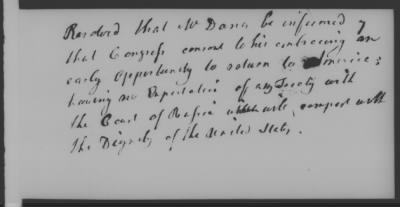 Resolved that Mr Dana be informed
that Congress consent to his embracing an
early opportunity to return to America;
having no Expectation of any Treaty with
the Court of Russia which will comport with
the Dignity of the United States.